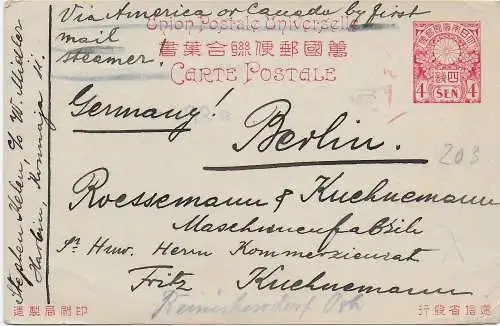 Via America or Canada by first
mail
steamer.
Union Postale Universelle
萬國郵便聯合葉書
CARTE POSTALE
大日本帝國郵便
四錢
4 SEN 4
Germany!
Berlin.
203
Roessemann & Kuehnemann
Maschinenfabrik
Sr. Hrw. Herrn Kommerzienrat
Fritz Kuehnemann
Reinickendorf Ost
Stephen Helen, c/o W. Midler
Harbin,
印刷局製造
逓信省發行